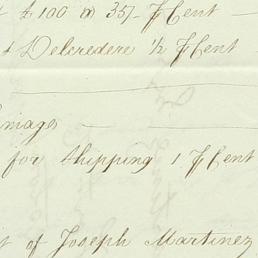 £100 @ 35/- ⅌ Cent
& Delcredere ½ ⅌ Cent
for Shipping 1 ⅌ Cent
of Joseph Martinez